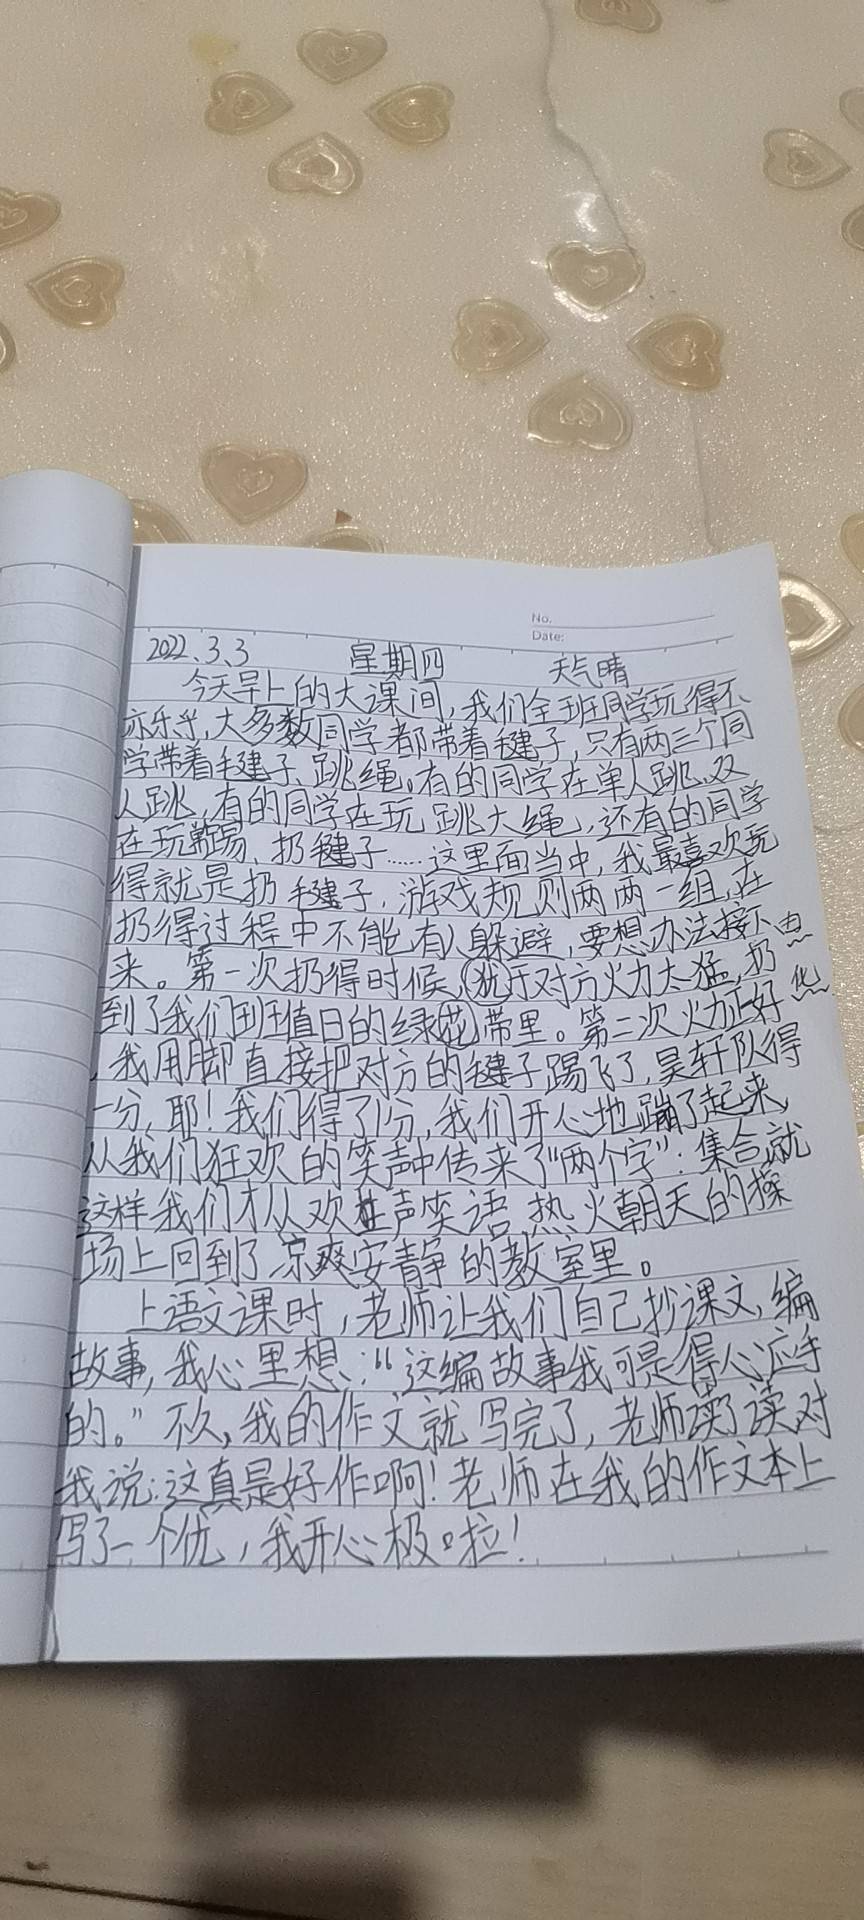 No.
Date:
2022.3.3 星期四 天气晴
今天早上的大课间,我们全班同学玩得不
亦乐乎,大多数同学都带着毽子,只有两三个同
学带着毽子、跳绳。有的同学在单人跳、双
人跳,有的同学在玩跳大绳,还有的同学
在玩踢、扔毽子……这里面当中,我最喜欢玩
得就是扔毽子,游戏规则两两一组,在
扔得过程中不能有人躲避,要想办法接下 由
来。第一次扔得时候,犹于对方火力太猛,扔 化
到了我们班值日的绿花带里。第二次火力正好
,我用脚直接把对方的毽子踢飞了,昊轩队得
一分,耶!我们得了1分,我们开心地蹦了起来,
从我们狂欢的笑声中传来了“两个字”:集合,就
这样我们才从欢声笑语、热火朝天的操
场上回到了凉爽安静的教室里。
上语文课时,老师让我们自己抄课文,编
故事,我心里想:“这编故事我可是得心应手
的。”不久,我的作文就写完了,老师读了读,对
我说:这真是好作啊!老师在我的作文本上
写了一个优,我开心极啦!